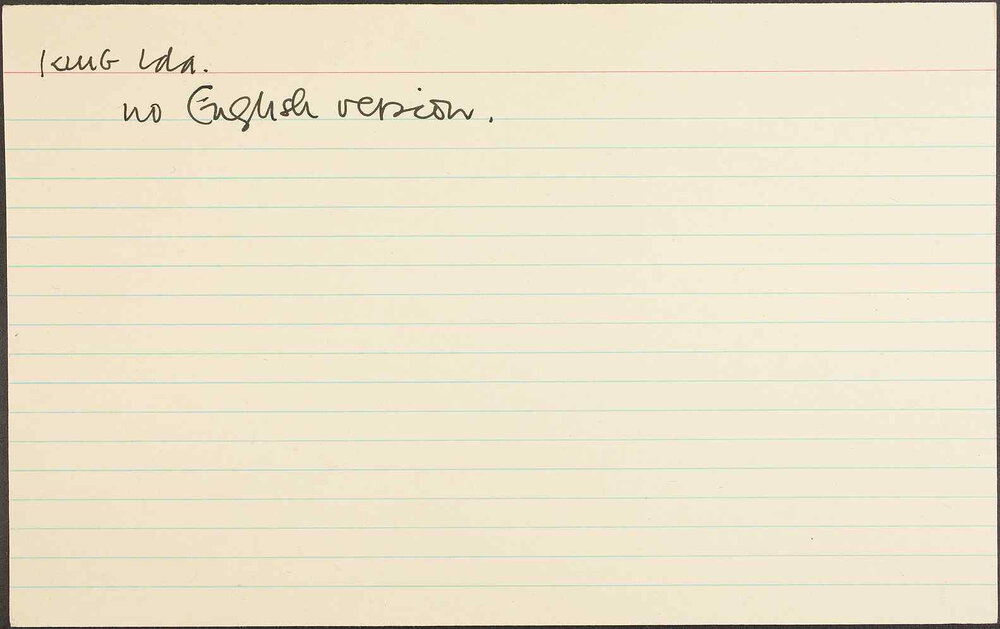 KING Ida.
no English version.